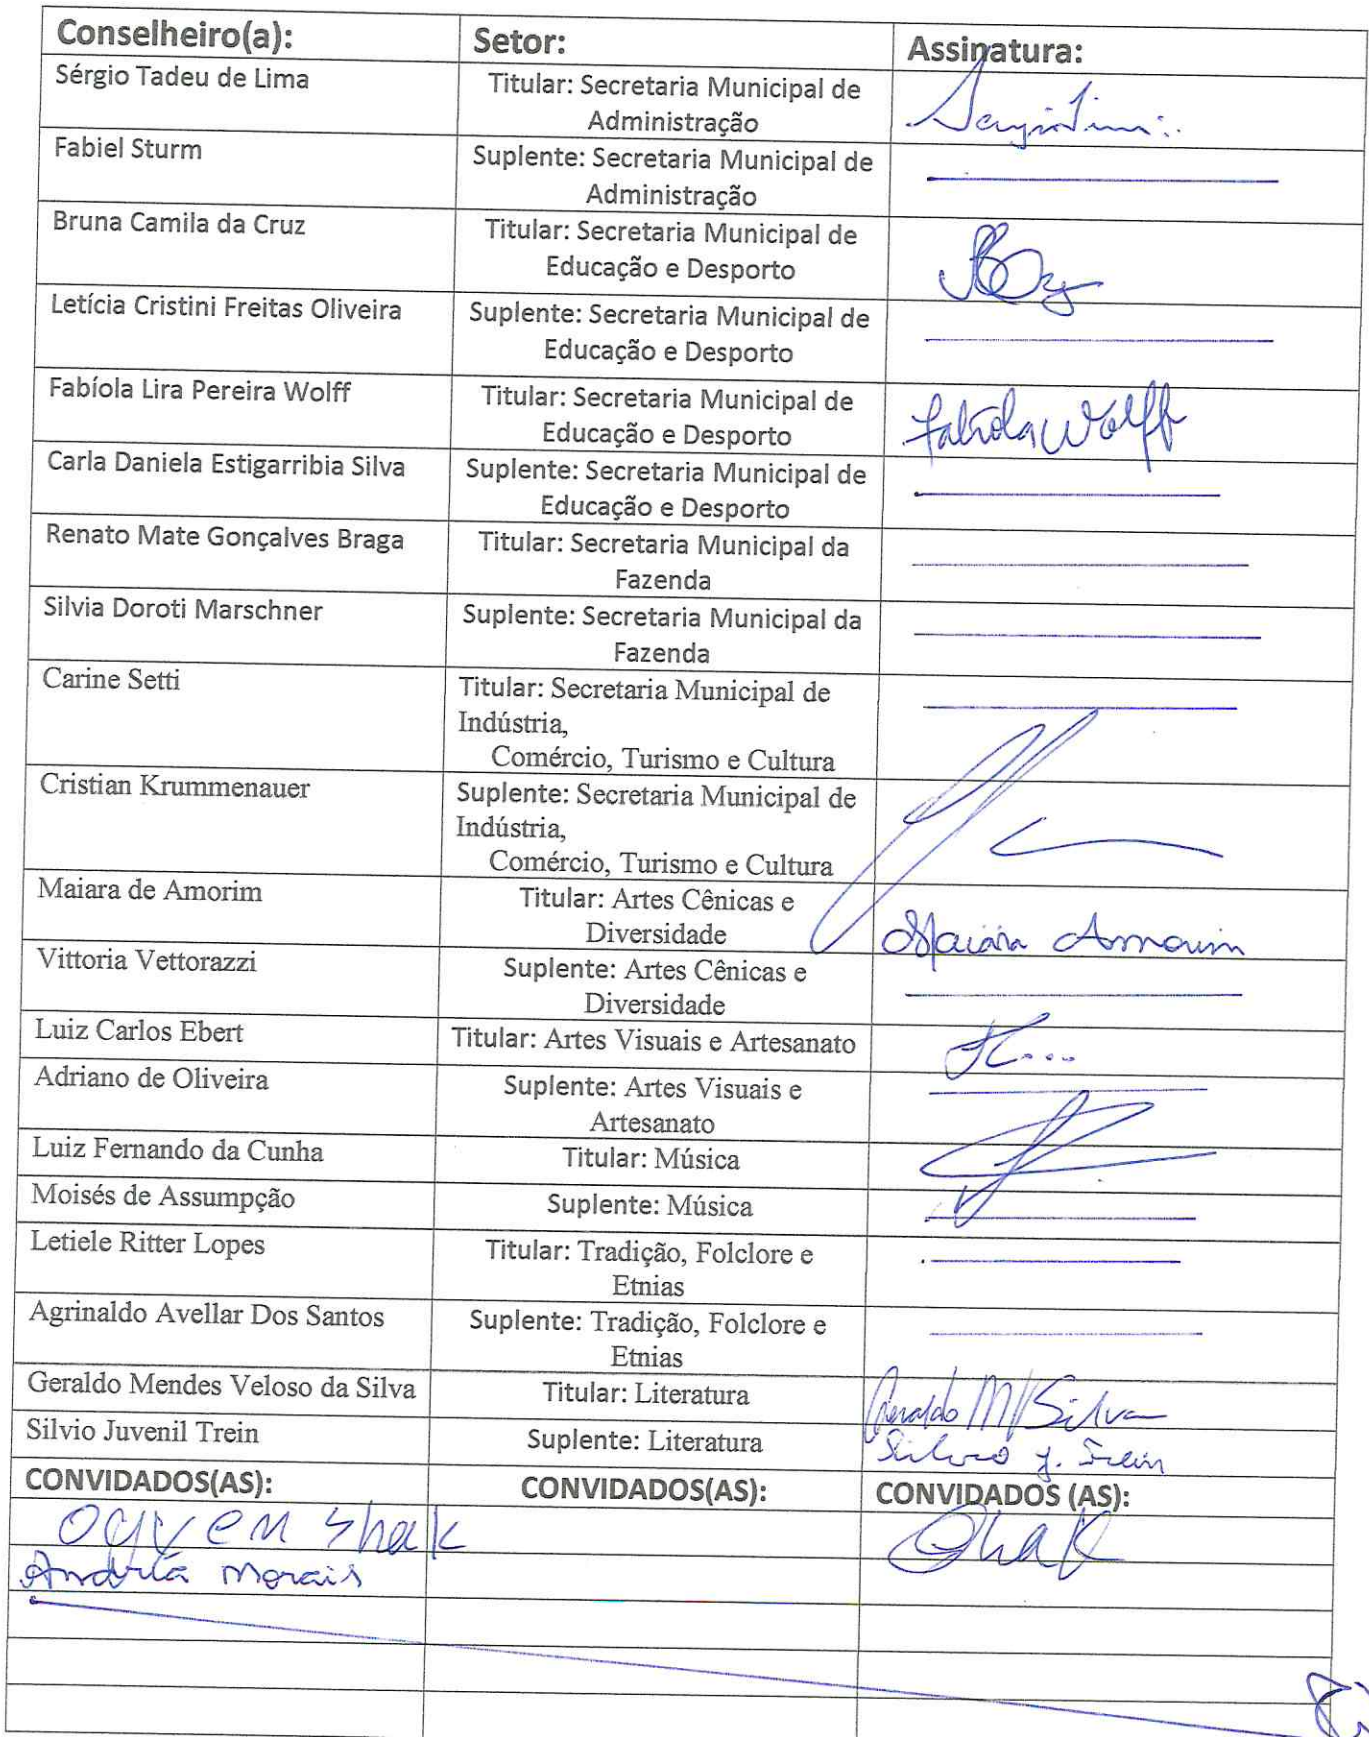 Conselheiro(a): Setor: Assinatura:
Sérgio Tadeu de Lima Titular: Secretaria Municipal de
Administração
Fabiel Sturm Suplente: Secretaria Municipal de
Administração
Bruna Camila da Cruz Titular: Secretaria Municipal de
Educação e Desporto
Letícia Cristini Freitas Oliveira Suplente: Secretaria Municipal de
Educação e Desporto
Fabíola Lira Pereira Wolff Titular: Secretaria Municipal de
Educação e Desporto Fabíola Wolff
Carla Daniela Estigarribia Silva Suplente: Secretaria Municipal de
Educação e Desporto
Renato Mate Gonçalves Braga Titular: Secretaria Municipal da
Fazenda
Silvia Doroti Marschner Suplente: Secretaria Municipal da
Fazenda
Carine Setti Titular: Secretaria Municipal de
Indústria,
Comércio, Turismo e Cultura
Cristian Krummenauer Suplente: Secretaria Municipal de
Indústria,
Comércio, Turismo e Cultura
Maiara de Amorim Titular: Artes Cênicas e
Diversidade Maiara Amorim
Vittoria Vettorazzi Suplente: Artes Cênicas e
Diversidade
Luiz Carlos Ebert Titular: Artes Visuais e Artesanato
Adriano de Oliveira Suplente: Artes Visuais e
Artesanato
Luiz Fernando da Cunha Titular: Música
Moisés de Assumpção Suplente: Música
Letiele Ritter Lopes Titular: Tradição, Folclore e
Etnias
Agrinaldo Avellar Dos Santos Suplente: Tradição, Folclore e
Etnias
Geraldo Mendes Veloso da Silva Titular: Literatura Geraldo M V Silva
Silvio Juvenil Trein Suplente: Literatura Silvio J. Trein
CONVIDADOS(AS): CONVIDADOS(AS): CONVIDADOS (AS):
Shak Shak
Andréa Morais